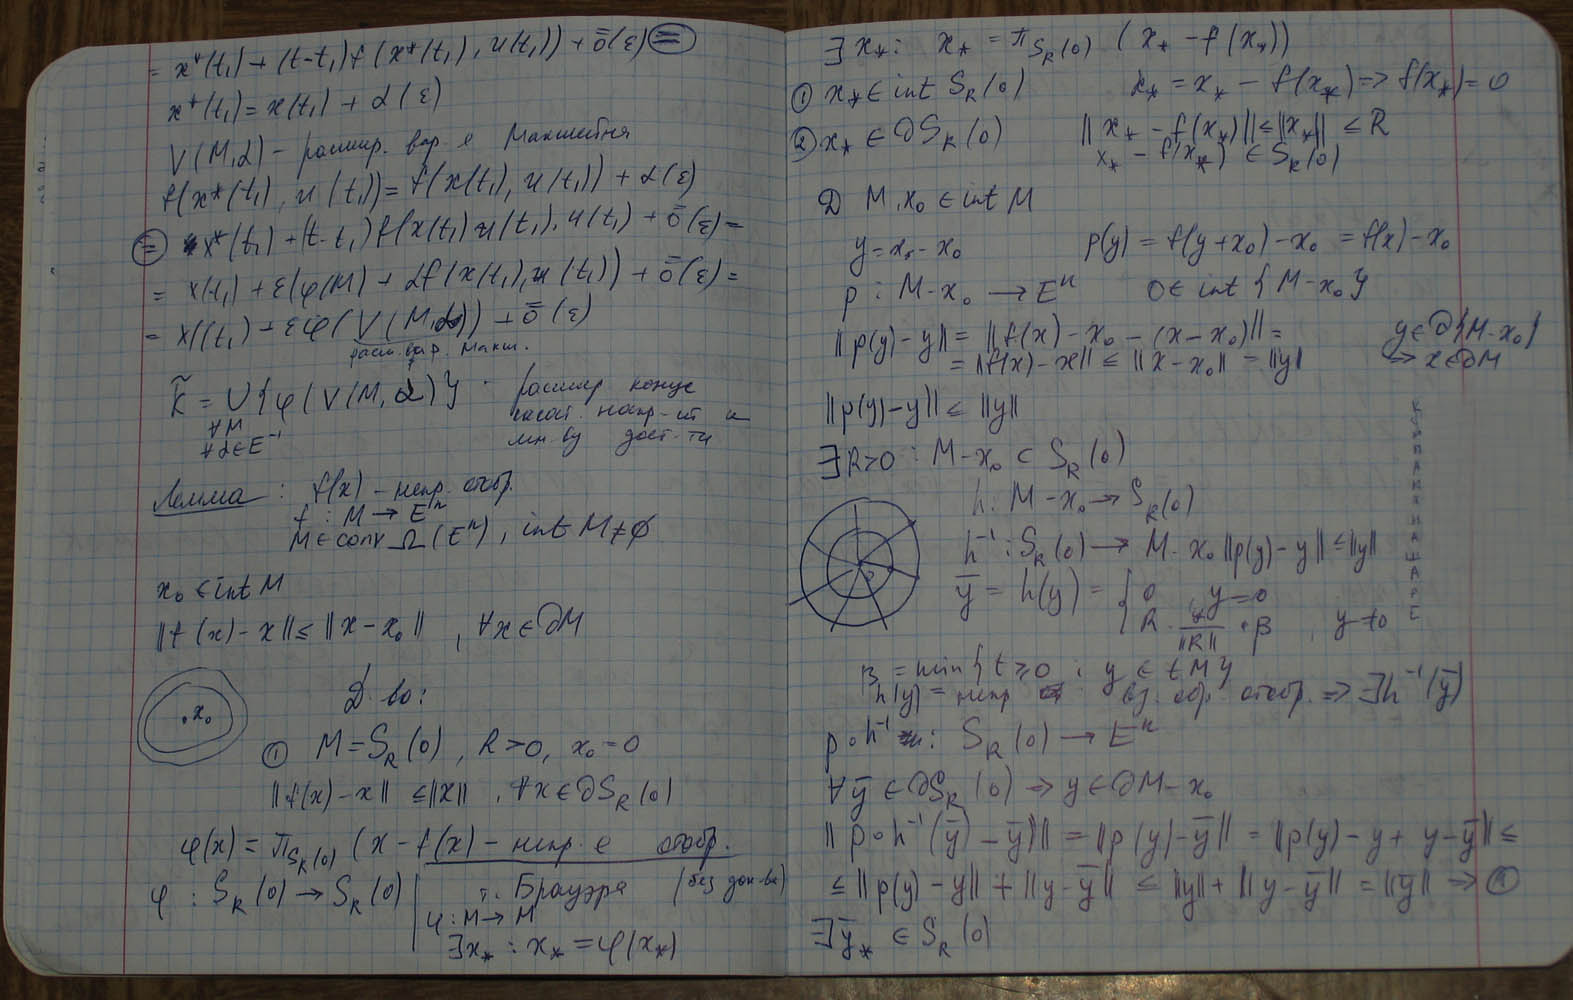 = x*(t₁) + (t-t₁) f(x*(t₁), u(t₁)) + ō(ε) =
x*(t₁) = x(t₁) + α(ε)
V(M,α) - расшир. вар. е Макшейна
f(x*(t₁), u(t₁)) = f(x(t₁), u(t₁)) + α(ε)
= x*(t₁) + (t-t₁) f(x(t₁) u(t₁), u(t₁) + ō(ε) =
= x(t₁) + ε(φ(M) + αf(x(t₁), u(t₁)) + ō(ε) =
= x(t₁) + εφ(V(M,α)) + ō(ε)
расш. вар. Макш.
K̃ = ∪{φ(V(M,α)} - расшир конус
∀M касат. напр-ий к
∀α∈E⁻¹ мн. ву дост-ти
Лемма: f(x) - непр. отобр.
f : M → Eⁿ
M ∈ conv Ω(Eⁿ), int M ≠ ∅
x₀ ∈ int M
||f(x) - x|| ≤ ||x - x₀||, ∀x ∈ ∂M
.x₀ Д-во:
① M = S_R(0), R > 0, x₀ = 0
||f(x) - x|| ≤ ||x||, ∀x ∈ ∂S_R(0)
φ(x) = π_{S_R(0)} (x - f(x) - непр. е отобр.
φ : S_R(0) → S_R(0) | т. Брауэра (без док-ва)
φ : M → M
∃x* : x* = φ(x*)
∃x* : x* = π_{S_R(0)} (x* - f(x*))
① x* ∈ int S_R(0) x* = x* - f(x*) ⇒ f(x*) = 0
② x* ∈ ∂S_R(0) ||x* - f(x*)|| ≤ ||x*|| ≤ R
x* - f(x*) ∈ S_R(0)
② M, x₀ ∈ int M
y = x - x₀ p(y) = f(y+x₀) - x₀ = f(x) - x₀
p : M - x₀ → Eⁿ 0 ∈ int {M - x₀}
||p(y) - y|| = ||f(x) - x₀ - (x - x₀)|| = y ∈ ∂{M - x₀}
= ||f(x) - x|| ≤ ||x - x₀|| = ||y|| ⇒ x ∈ ∂M
||p(y) - y|| ≤ ||y||
∃R>0 : M - x₀ ⊂ S_R(0)
h : M - x₀ → S_R(0)
h⁻¹ : S_R(0) → M - x₀ ||p(y) - y|| ≤ ||y||
ȳ = h(y) = { 0 y = 0
R · y/||R|| · β , y ≠ 0
β = min{t ≥ 0 : y ∈ tM}
h(y) = непр вз. обр. отобр. ⇒ ∃h⁻¹(ȳ)
p∘h⁻¹ : S_R(0) → Eⁿ
∀ȳ ∈ ∂S_R(0) ⇒ y ∈ ∂M - x₀
||p∘h⁻¹(ȳ) - ȳ|| = ||p(y) - ȳ|| = ||p(y) - y + y - ȳ|| ≤
≤ ||p(y) - y|| + ||y - ȳ|| ≤ ||y|| + ||y - ȳ|| = ||ȳ|| ⇒ ①
∃ȳ* ∈ S_R(0)